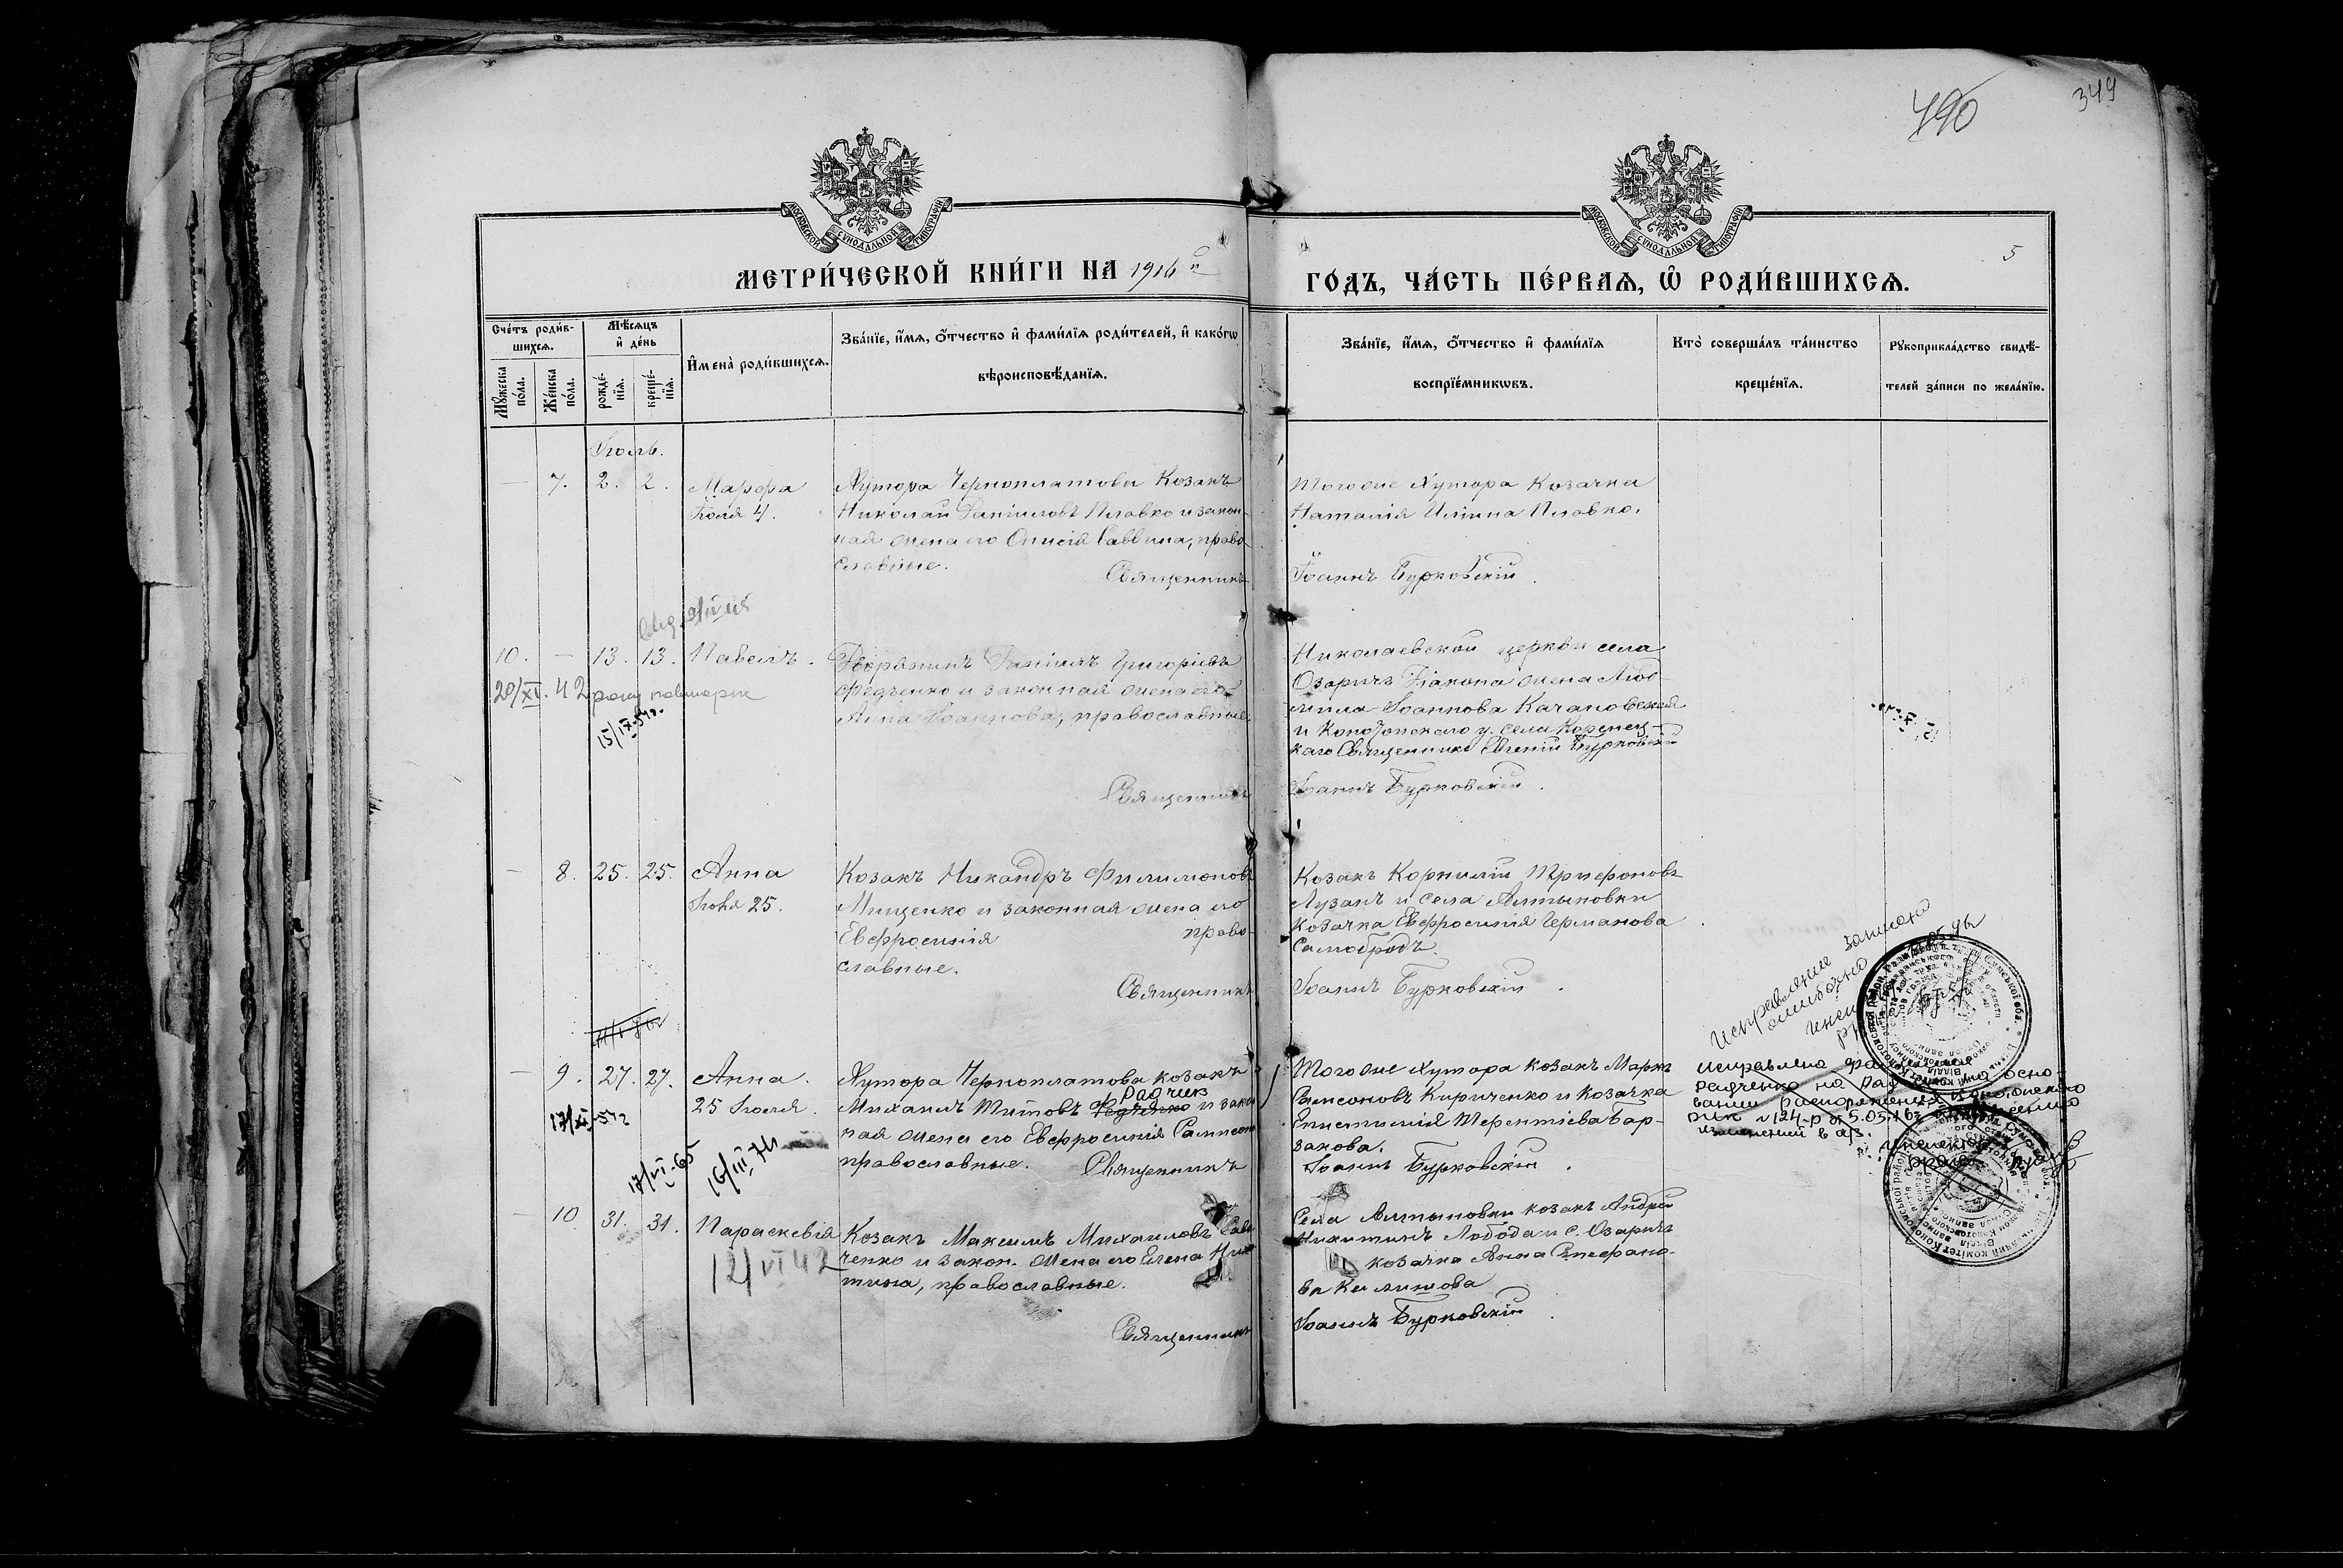 490
349
МОСКОВСКОЙ СѴНОДАЛЬНОЙ ТИПОГРАФІИ
МОСКОВСКОЙ СѴНОДАЛЬНОЙ ТИПОГРАФІИ
5
МЕТРИ́ЧЕСКОЙ КНИ́ГИ НА 1916 й
ГО́ДЪ, ЧА́СТЬ ПЕ́РВАѦ, Ѡ҆ РОДИ́ВШИХСѦ.
Сче́тъ роди́в-
шихсѧ.
Мꙋ́жеска по́ла.
Же́нска по́ла.
Мѣ́сѧцъ и҆ де́нь
рожде́-нїѧ.
креще́-нїѧ.
И҆мена̀ роди́вшихсѧ.
Зва́нїе, и҆́мѧ, ѻ҆́тчество и҆ фами́лїѧ роди́телей, и҆ како́гѡ
вѣроисповѣ́данїѧ.
Зва́нїе, и҆́мѧ, ѻ҆́тчество и҆ фами́лїѧ
воспрїе́мникѡвъ.
Кто̀ соверша́лъ та́инство
креще́нїѧ.
Рꙋкоприкла́дство свидѣ́-
телей за́писи по жела́нїю.
Іюль.
— 7. 2. 2. Марфа
Іюля 4.
Хутора Черноплатова Козакъ
Николай Даніиловъ Плавко и закон-
ная жена его Онисія Саввина, право-
славные.
Священникъ
Тогоже Хутора Козачка
Наталія Иліина Плавко.
Іоаннъ Бурковскій.
10. — 13. 13. Павелъ.
20/XI. 42
15/IX-54г.
Дворянинъ Даніилъ Григоріевъ
Федченко и законная жена его
Анна Іоаннова, православные
Священникъ
Николаевской церкви села
Озаричъ Діакона жена Люд-
мила Іоаннова Качановская
и Конотопскаго у. села Коренец-
каго Священникъ Евгеній Бурковскій
Іоаннъ Бурковскій.
— 8. 25. 25. Анна
Іюля 25.
Козакъ Никандръ Филимоновъ
Мищенко и законная жена его
Евфросинія право-
славные.
Священникъ
Козакъ Корнилій Трифоновъ
Лузанъ и села Алтыновки
козачка Евфросинія Германова
Самобродъ.
Іоаннъ Бурковскій.
— 9. 27. 27. Анна.
25 Іюля.
17/XI-54г
17/VI-65
16/III-74
Хутора Черноплатова козакъ
Радчик
Михаилъ Титовъ Федченко и закон
ная жена его Евфросинія Сампсон
православные. Священникъ
Тогоже Хутора козакъ Маркъ
Сампсоновъ Кириченко и Козачка
Епистимія Терентіева Бар-
закова.
Іоаннъ Бурковскій.
Исправление записано
ошибочно
— 10 31. 31. Параскевія
12/VI 42
Козакъ Максимъ Михаиловъ Сав
ченко и закон. жена его Елена Ники
тина, православные.
Священникъ
Села Алтыновки козакъ Андрей
Никитинъ Лобода и с. Озаричъ
козачка Анна Стефано-
ва Калишова
Іоаннъ Бурковскій.